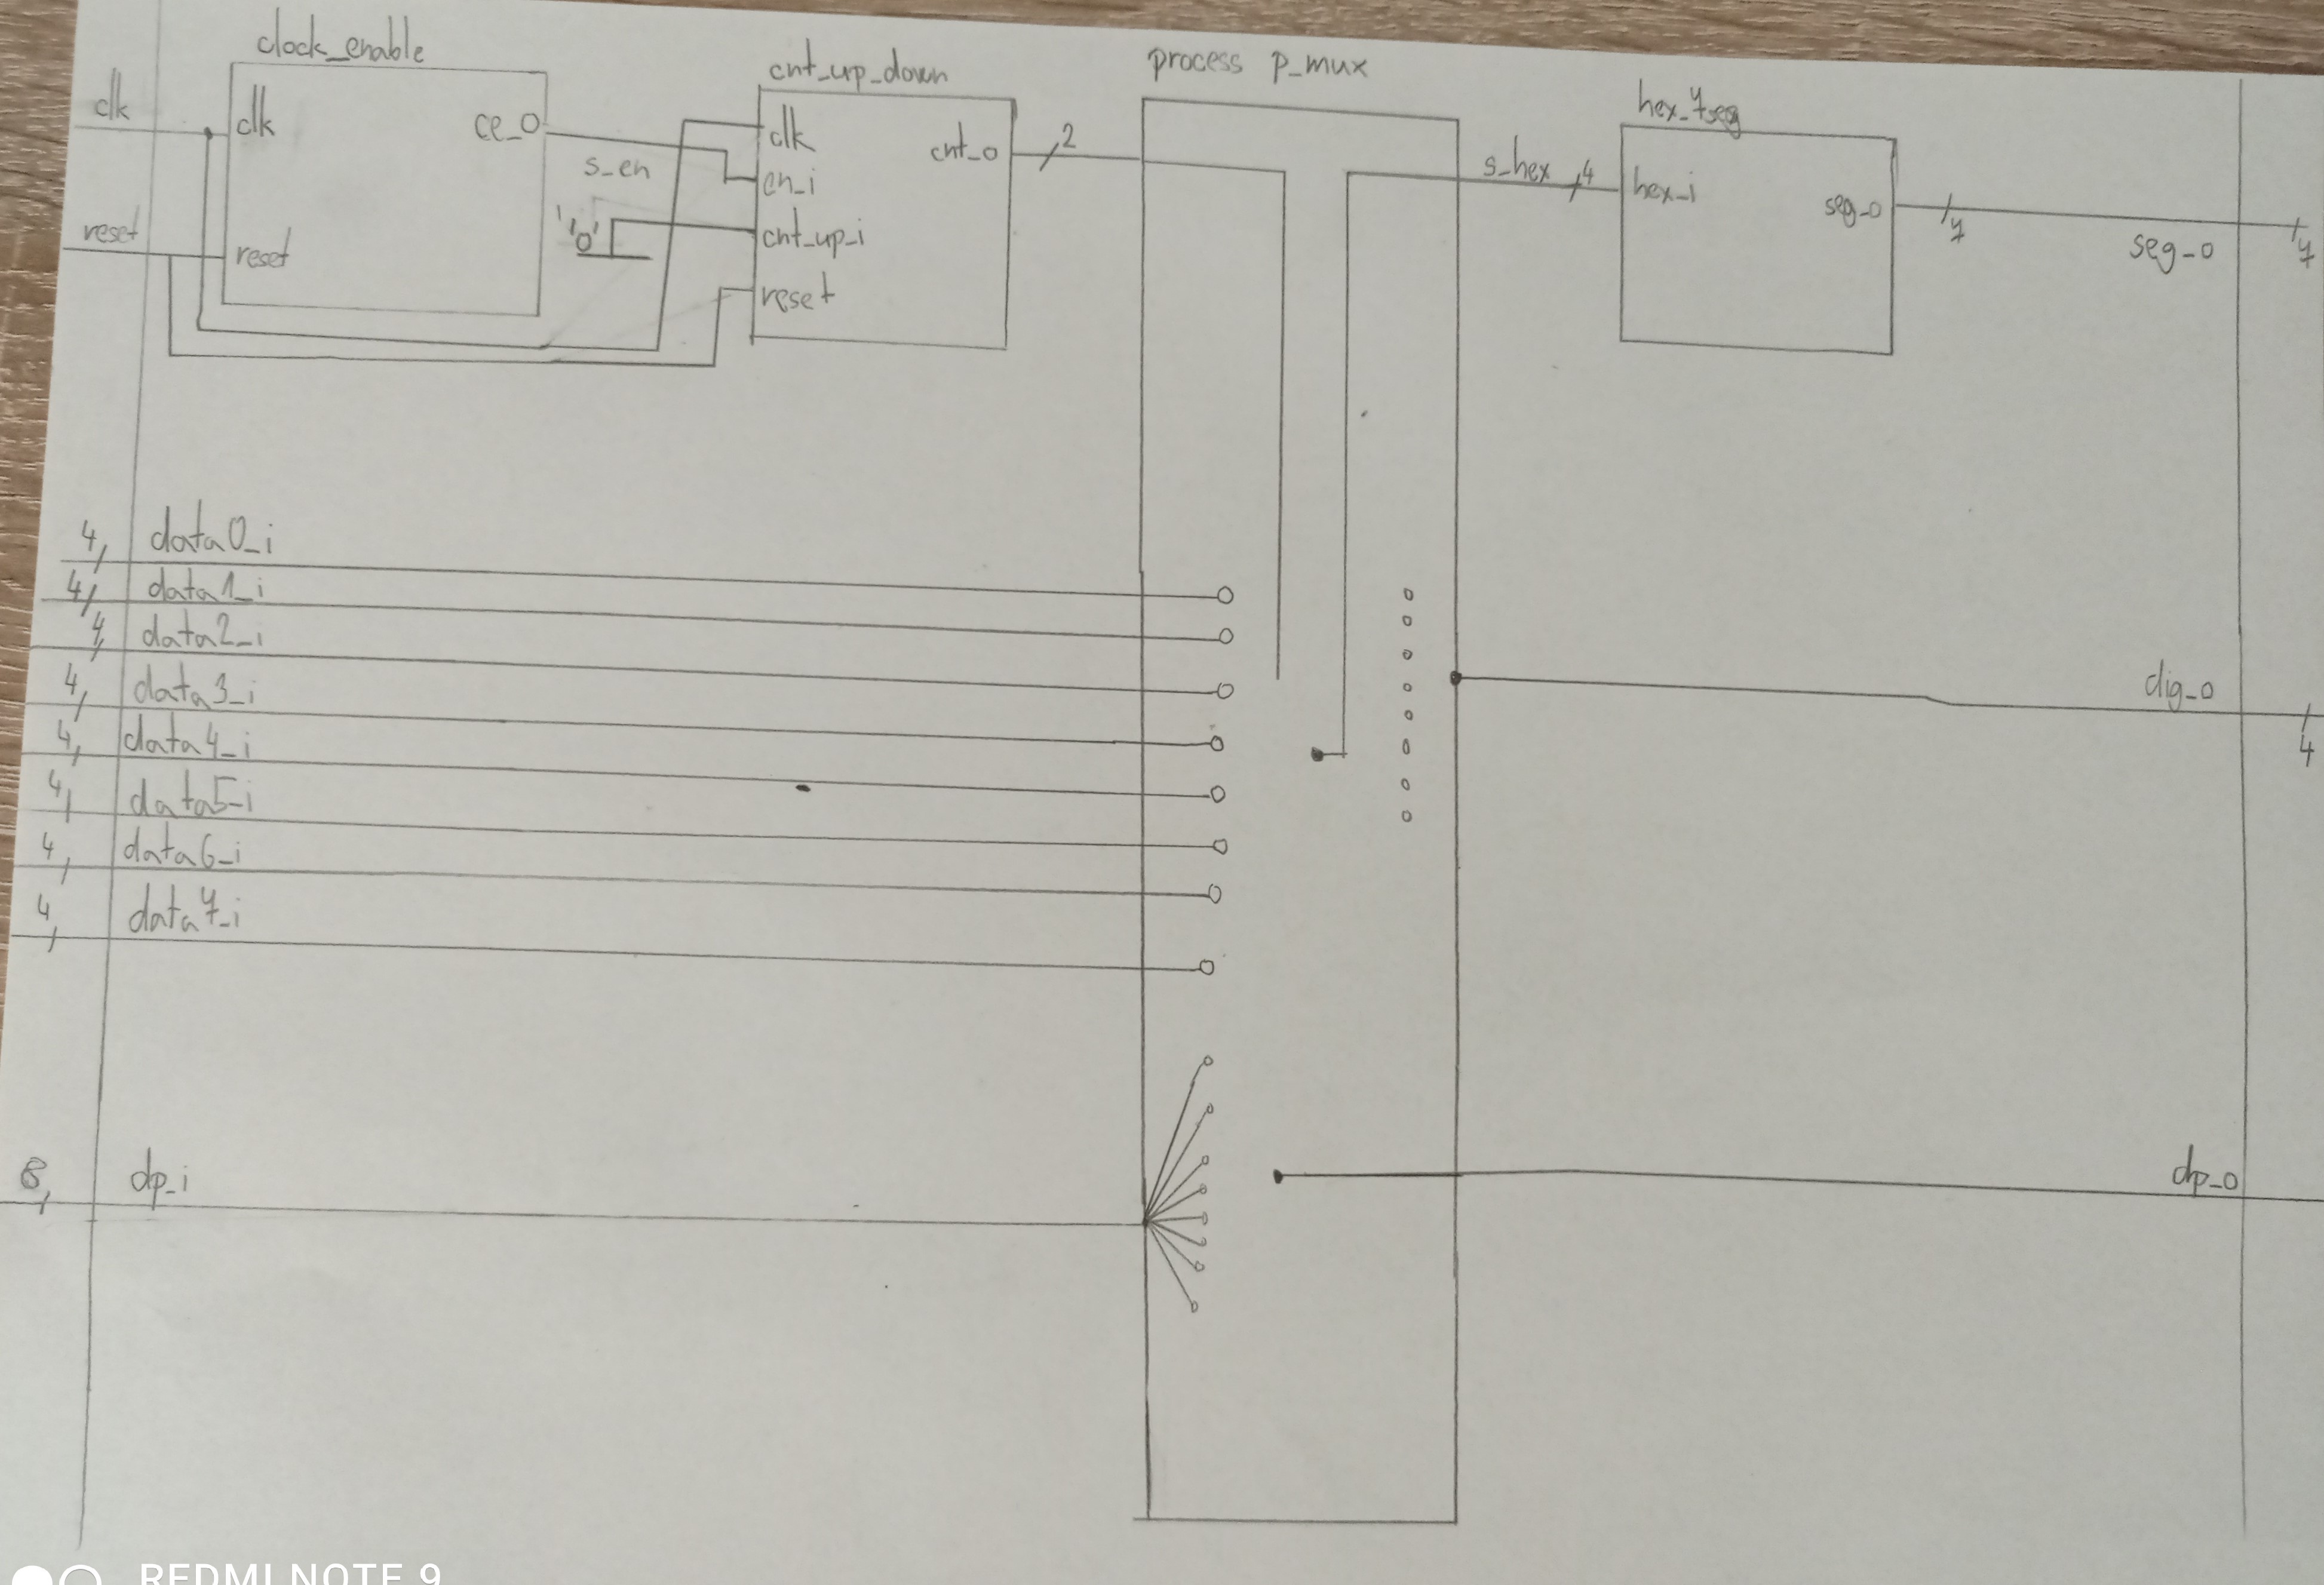 clock_enable
clk
clk
ce_0
s_en
reset
reset
cnt_up_down
clk
cnt_0
2
en_i
'0'
cnt_up_i
reset
process p_mux
s_hex
4
hex_7seg
hex_i
seg_0
7
seg_0
7
4
data0_i
4
data1_i
4
data2_i
4
data3_i
4
data4_i
4
data5_i
4
data6_i
4
data7_i
dig_0
4
8
dp_i
dp_0
REDMI NOTE 9